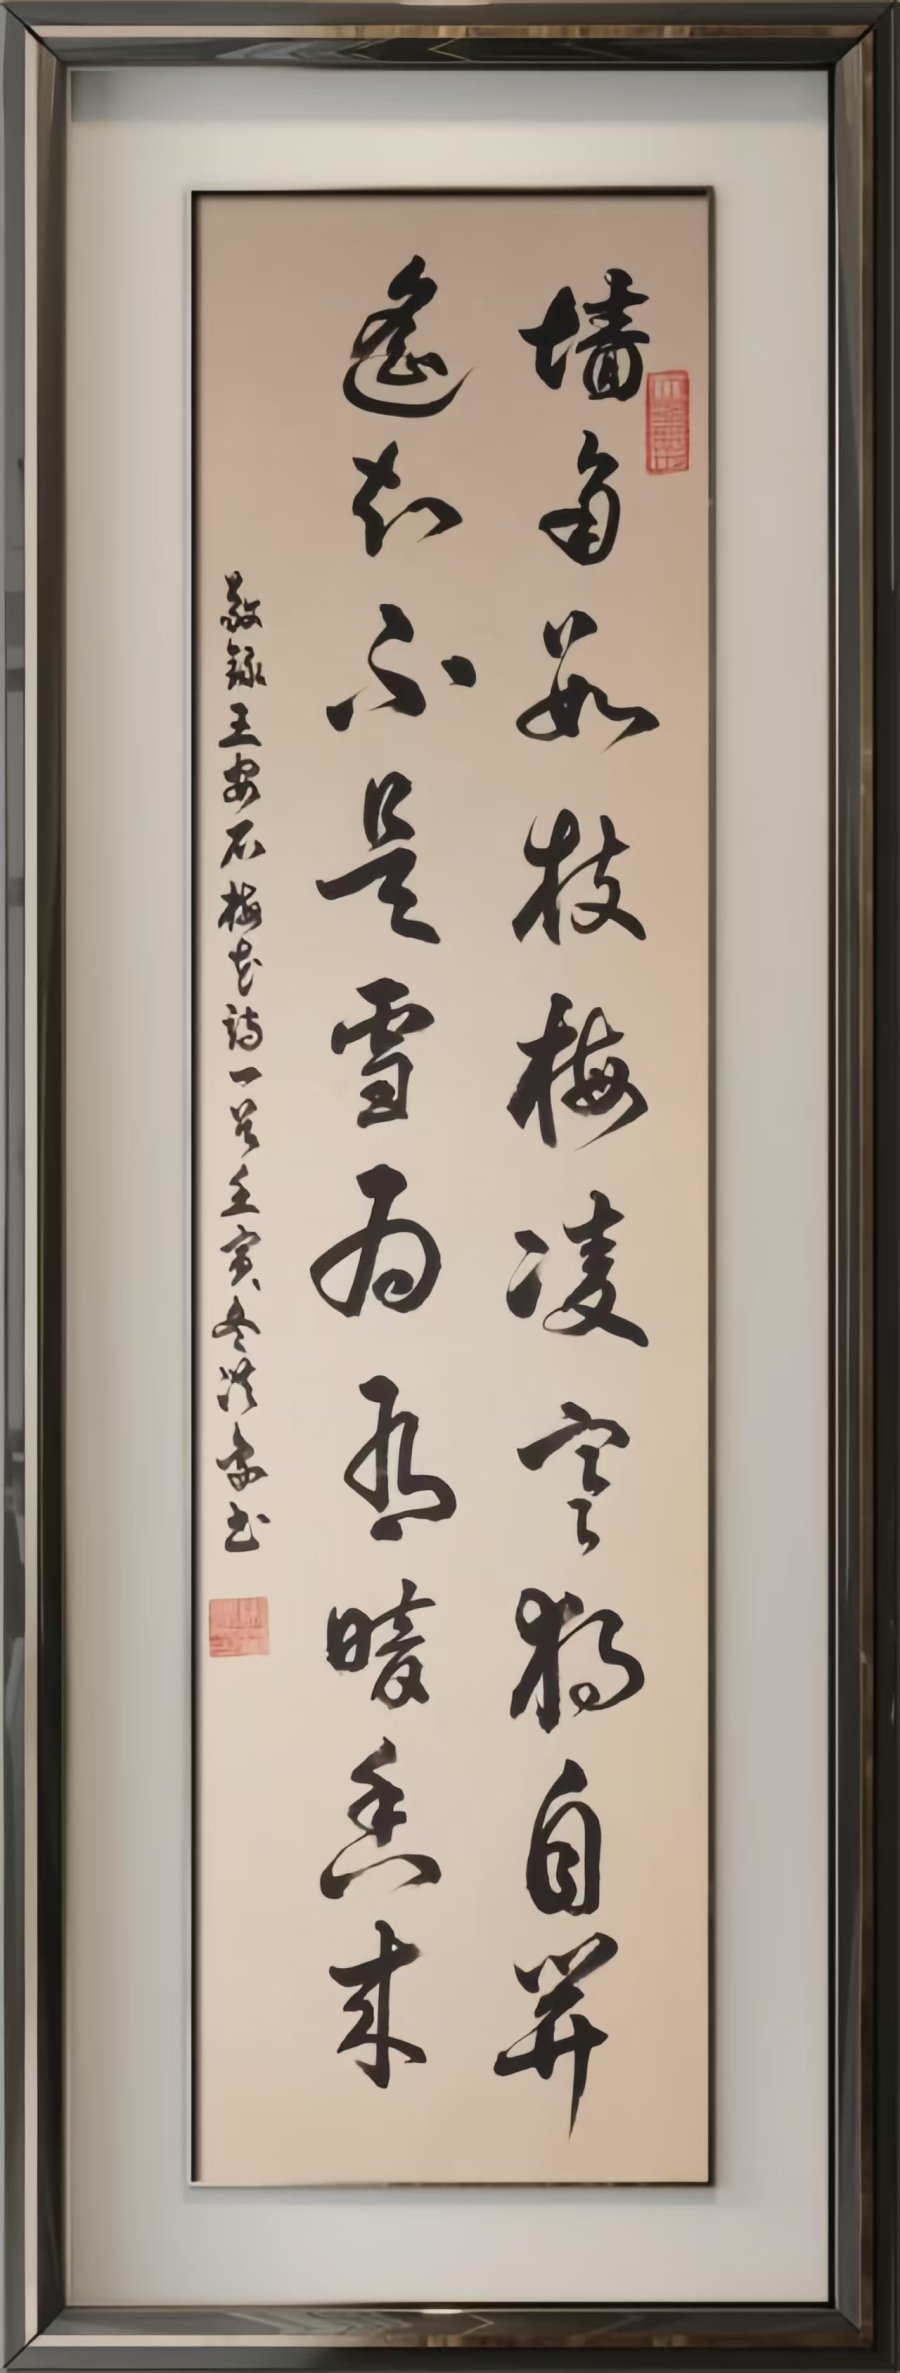 墙角数枝梅凌寒独自开
遥知不是雪为有暗香来
敬录王安石梅花诗一首壬寅冬书